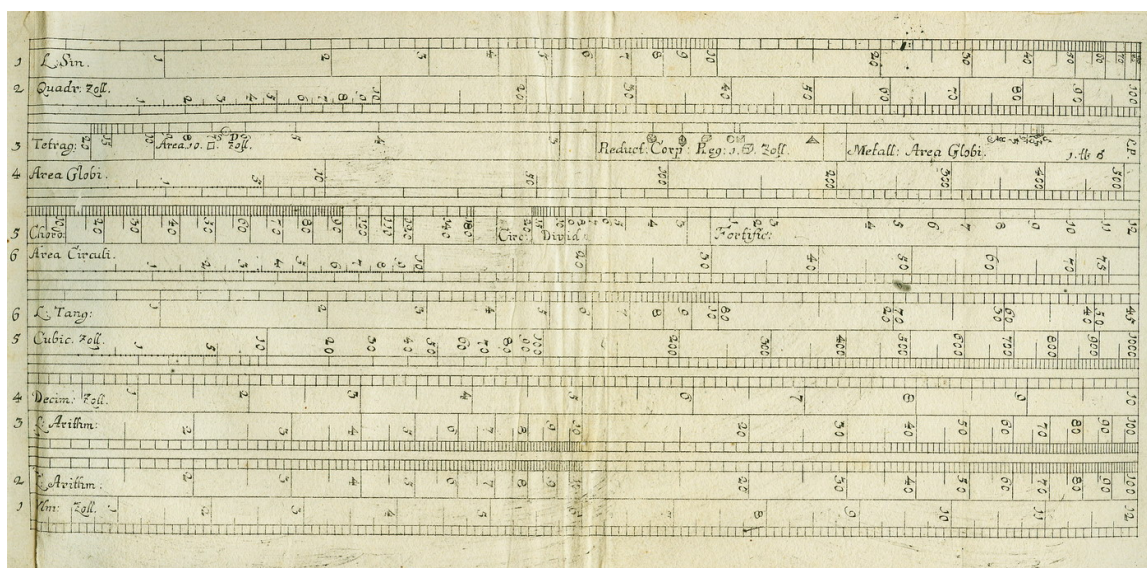 1 L. Sin. 1 2 3 4 5 6 7 8 9 10 20 30 40 50 60 70
2 Quadr. Zoll. 1 2 3 4 5 6 7 8 9 10 20 30 40 50 60 70 80 90 100
3 Tetrag: 20 15 10 Area. 10. □. Zoll. 5 4 3 Reduct. Corp: Reg: 1. Zoll. Metall: Area Globi. 1. ℔ C.P.
4 Area Globi. 1 5 10 50 100 200 300 400 500
5 Chord: 10 20 30 40 50 60 70 80 90 100 110 120 140 180 Circ: Divid: 20 15 10 9 8 7 6 5 4 3 1 2 3 Fortific: 4 5 6 7 8 9 10 11 12
6 Area Circuli. 1 2 3 4 5 6 7 8 9 10 20 30 40 50 60 70 75
6 L: Tang: 1 2 3 4 5 6 7 8 9 10 80 20 70 30 60 40 50 45
5 Cubic. Zoll. 1 5 10 20 30 40 50 60 70 80 90 100 200 300 400 500 600 700 800 900 1000
4 Decim: Zoll. 1 2 3 4 5 6 7 8 9 10
3 L: Arithm: 2 3 4 5 6 7 8 9 10 20 30 40 50 60 70 80 90 100
2 L: Arithm: 2 3 4 5 6 7 8 9 10 20 30 40 50 60 70 80 90 100
1 Zoll. 1 2 3 4 5 6 7 8 9 10 11 12